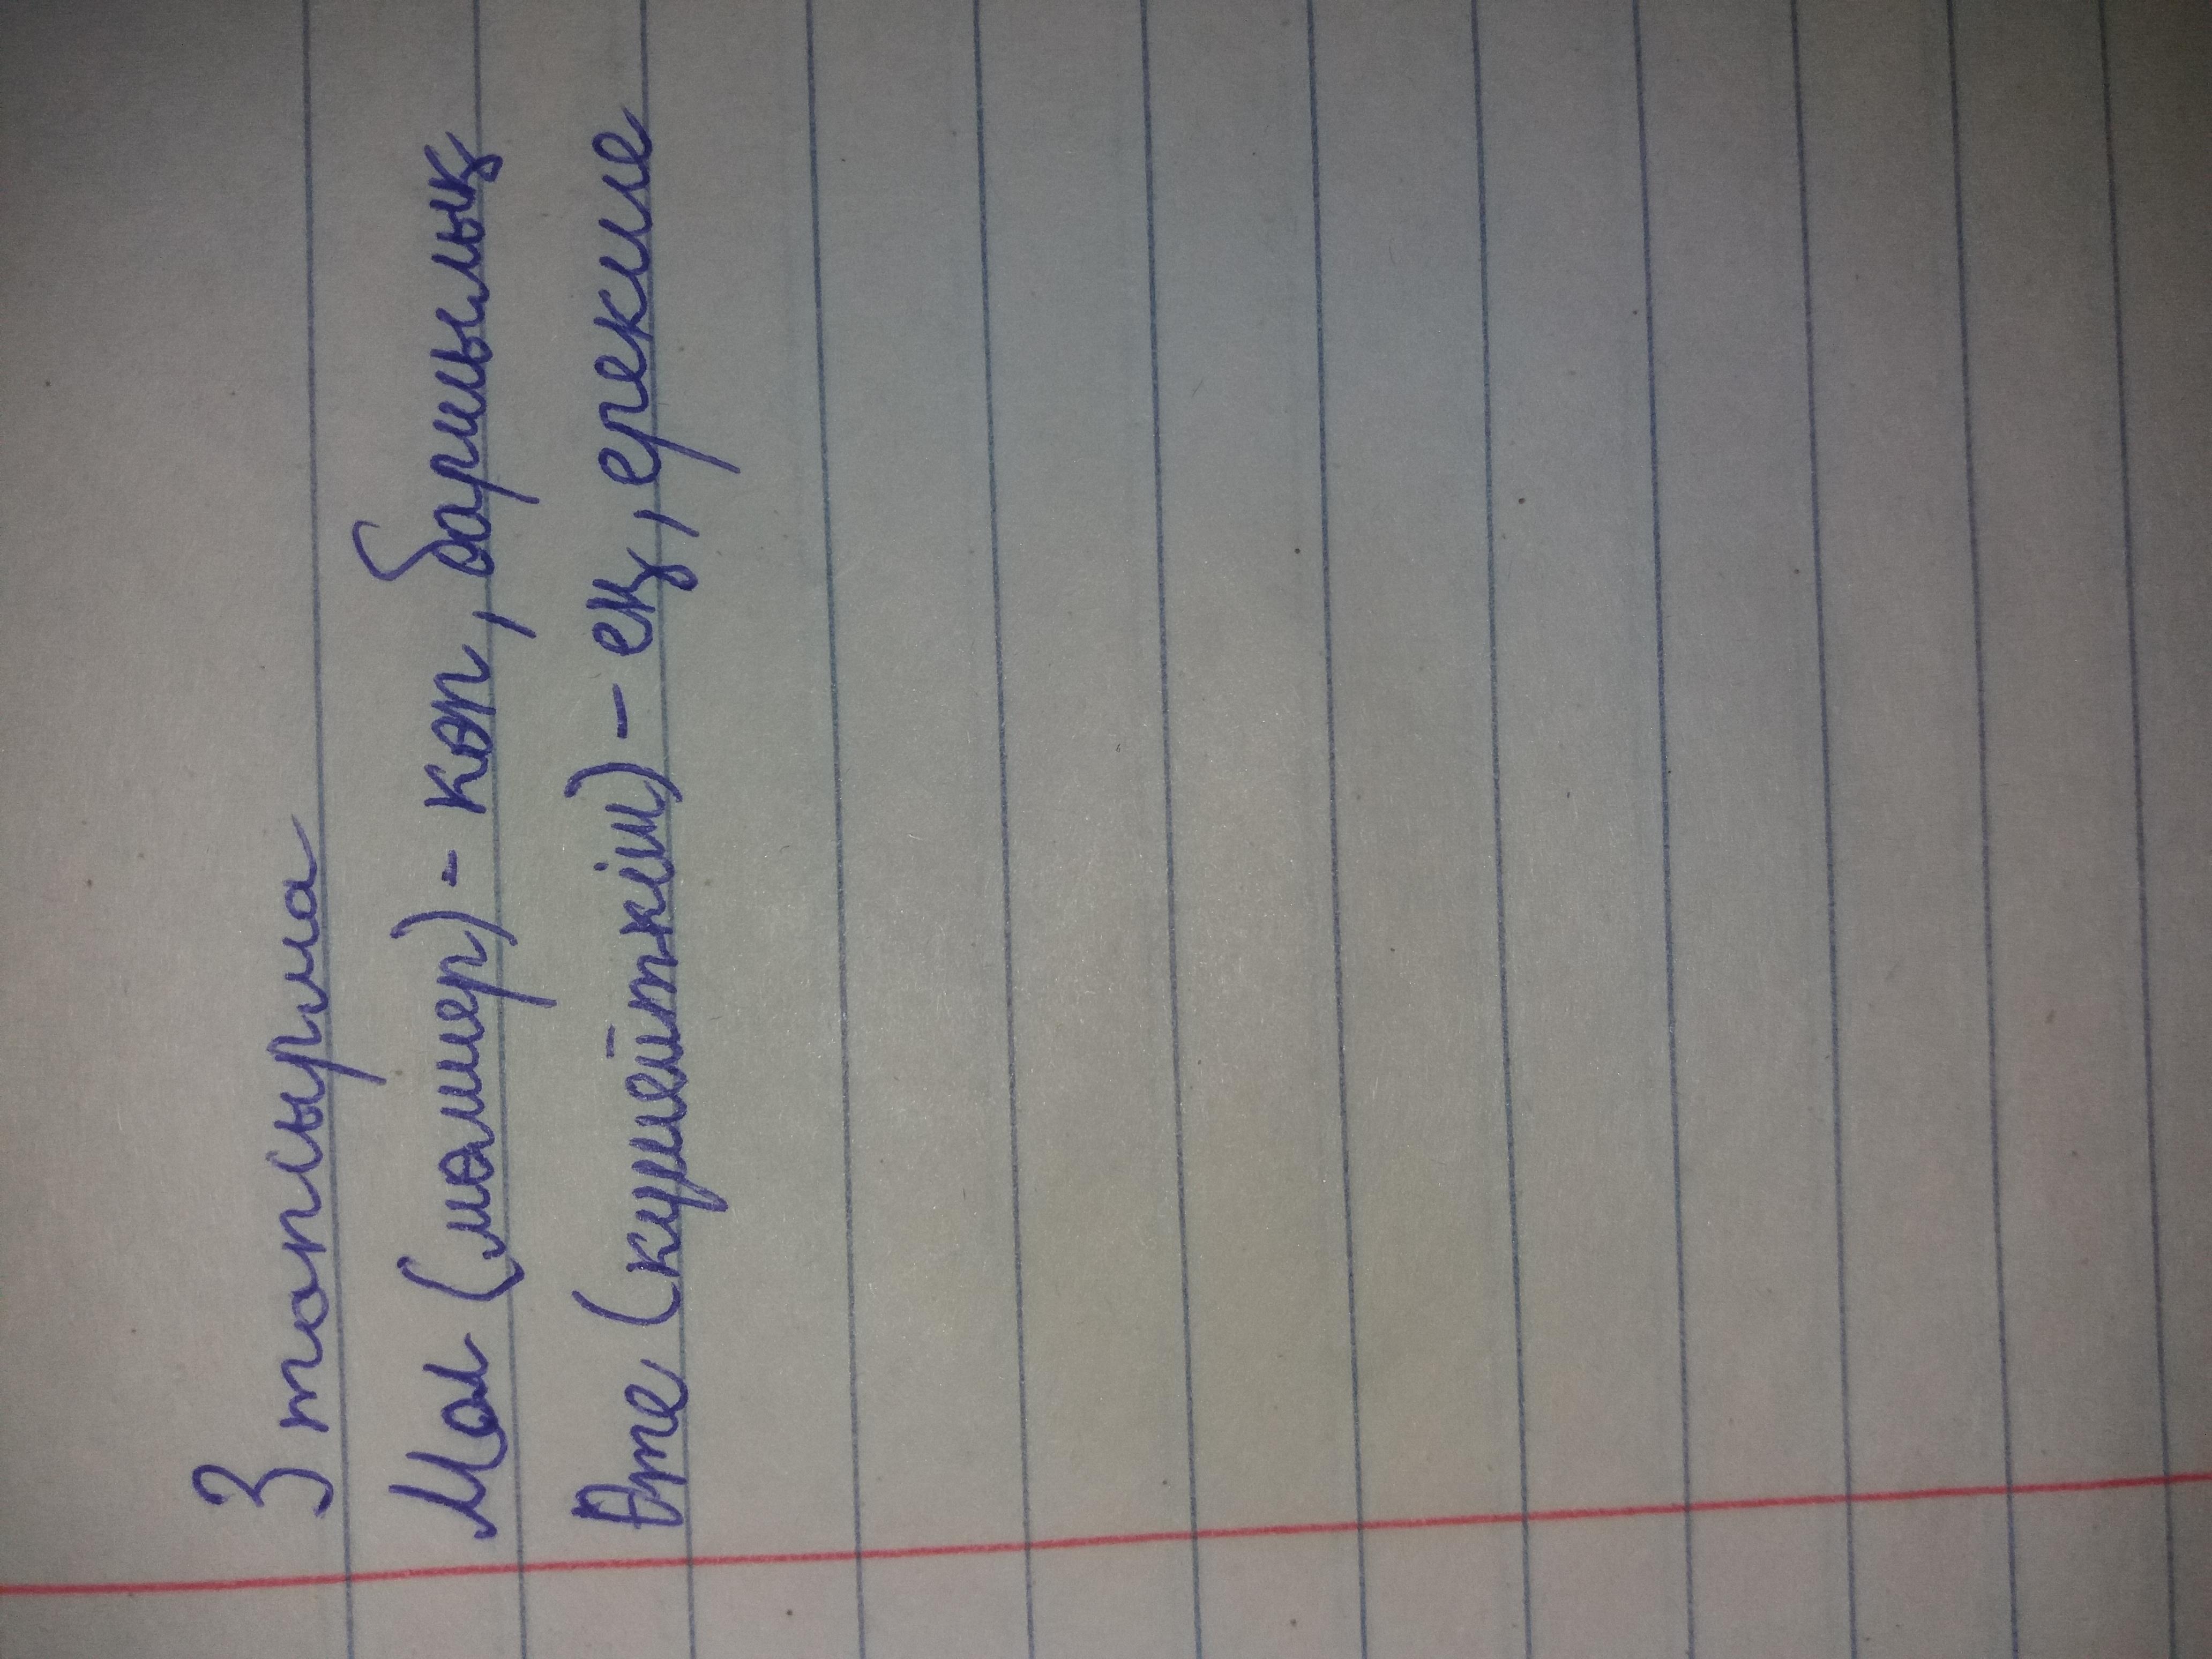 3 тапсырма
Мол (мөлшер) - көп, баршылық
Өте (күшейткіш) - ең, ерекше